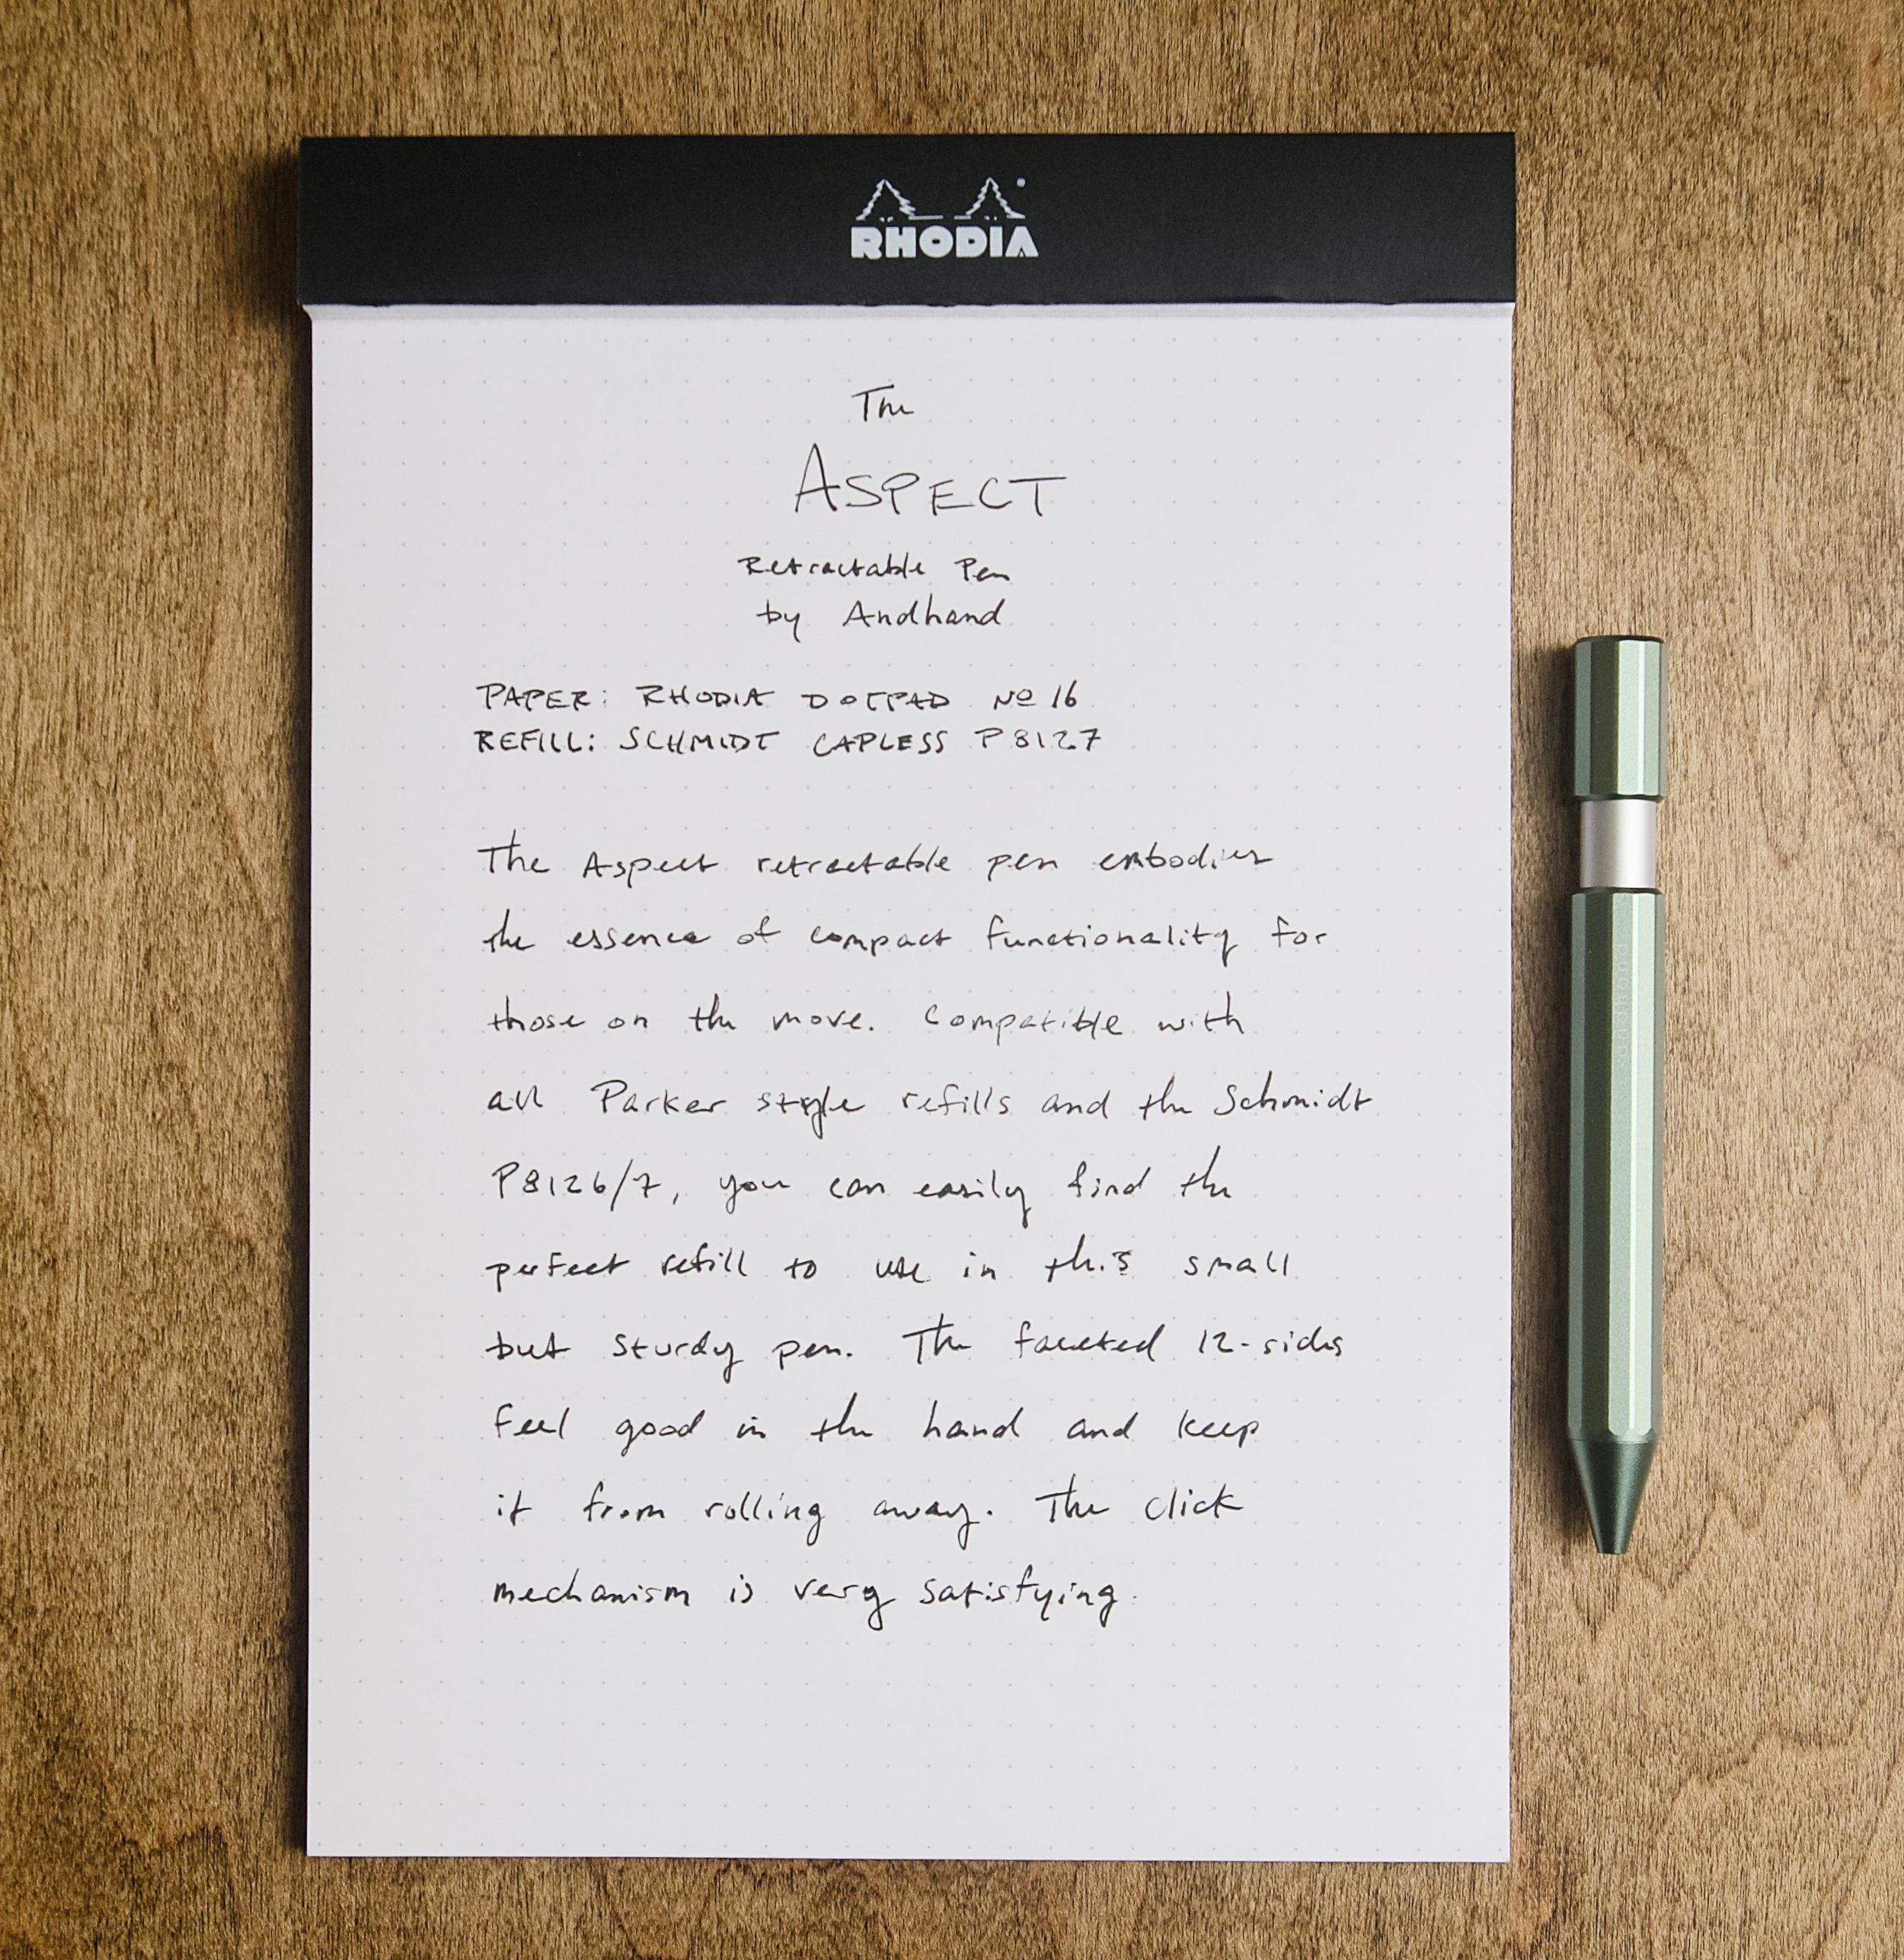 RHODIA
The
ASPECT
Retractable Pen
by Andhand
PAPER: RHODIA DOTPAD Nº 16
REFILL: SCHMIDT CAPLESS P8127
The Aspect retractable pen embodies
the essence of compact functionality for
those on the move. Compatible with
all Parker style refills and the Schmidt
P8126/7, you can easily find the
perfect refill to use in this small
but sturdy pen. The faceted 12-sides
feel good in the hand and keep
it from rolling away. The click
mechanism is very satisfying.
andhand